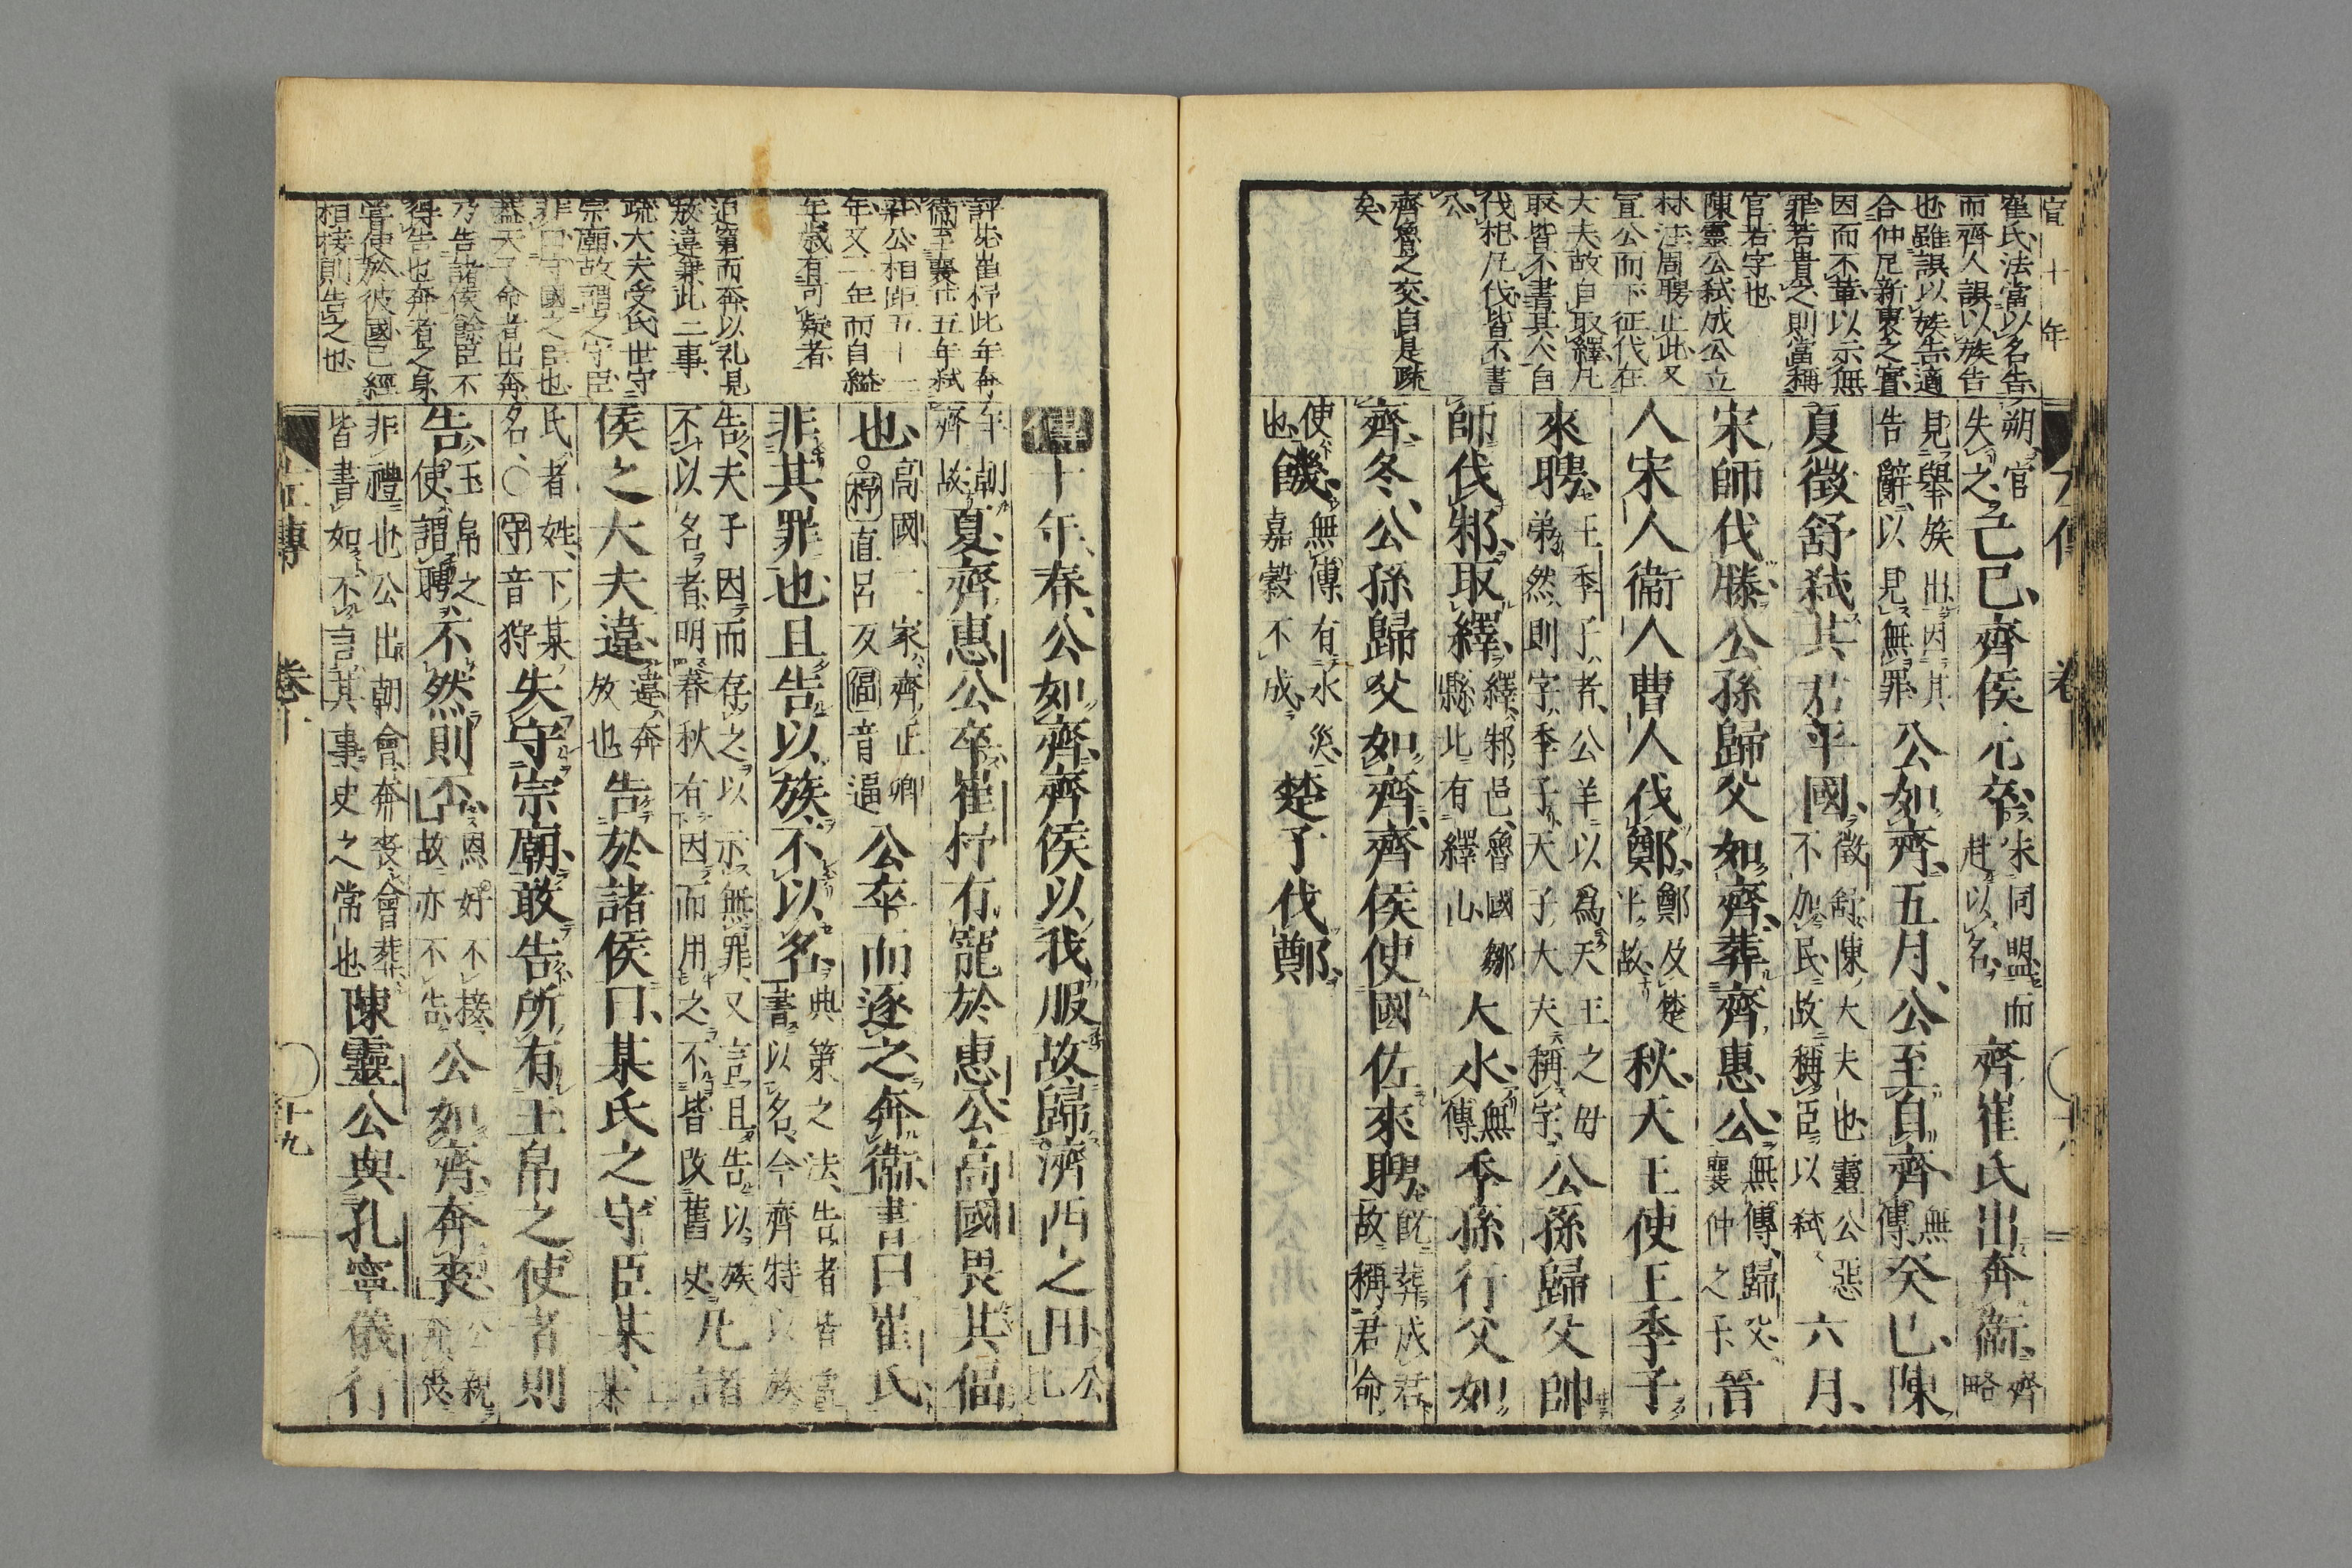 宣十年
崔氏法當以名告
而齊人誤以族告
也雖誤以族告適
合仲尼新褒之實
因而不革以示無
罪若貴之則當稱
官若字也
陳靈公弑成公立
林注周聘止此又
宣公而下征伐在
大夫故自取繹凡
取皆不書其人自
伐杞凡伐皆不書
公
齊魯之交自是疏
矣
朔官失之己巳齊侯元卒未同盟而赴以名齊崔氏出奔衞齊略
見舉族出因其告辭以見無罪公如齊五月公至自齊無傳癸巳陳
夏徵舒弑其君平國徵舒陳大夫也靈公惡不加民故稱臣以弑六月
宋師伐滕公孫歸父如齊葬齊惠公無傳歸父襄仲之子晉
人宋人衞人曹人伐鄭鄭及楚平故秋天王使王季子
來聘王季子者公羊以爲天王之母弟然則字季子天子大夫稱字公孫歸父帥
師伐邾取繹繹邾邑魯國鄒縣北有繹山大水無傳季孫行父如
齊冬公孫歸父如齊齊侯使國佐來聘既葬成君故稱君命
使也無傳有水災嘉穀不成饑楚子伐鄭
評苑崔杼此年奔
衞至襄廿五年弑
莊公相距五十一
年又二年而自縊
年歲有可疑者
迫窮而奔以礼見
放違兼此二事
疏大夫受氏世守
宗廟故謂之守臣
非曰守國之臣也
蓋天子命者出奔
乃告諸侯餘臣不
得告也奔者之身
嘗使於彼國已經
相接則告之也
傳十年春公如齊齊侯以我服故歸濟西之田公比
年朝齊故夏齊惠公卒崔杼有寵於惠公高國畏其偪
也高國二家齊正卿○杼直呂反偪音逼公卒而逐之奔衞書曰崔氏
非其罪也且告以族不以名典策之法告者皆當書以名今齊特以族
告夫子因而存之以示無罪又言且告以族不以名者明春秋有因而用之不皆改舊史凡諸
侯之大夫違違奔放也告於諸侯曰某氏之守臣某
氏者姓下某名○守音狩失守宗廟敢告所有玉帛之使者則
告玉帛之使謂聘不然則不恩好不接故亦不告公如齊奔喪公親奔喪
非禮也公出朝會奔喪會葬皆書如不言其事史之常也陳靈公與孔寧儀行
左傳 卷十 十九